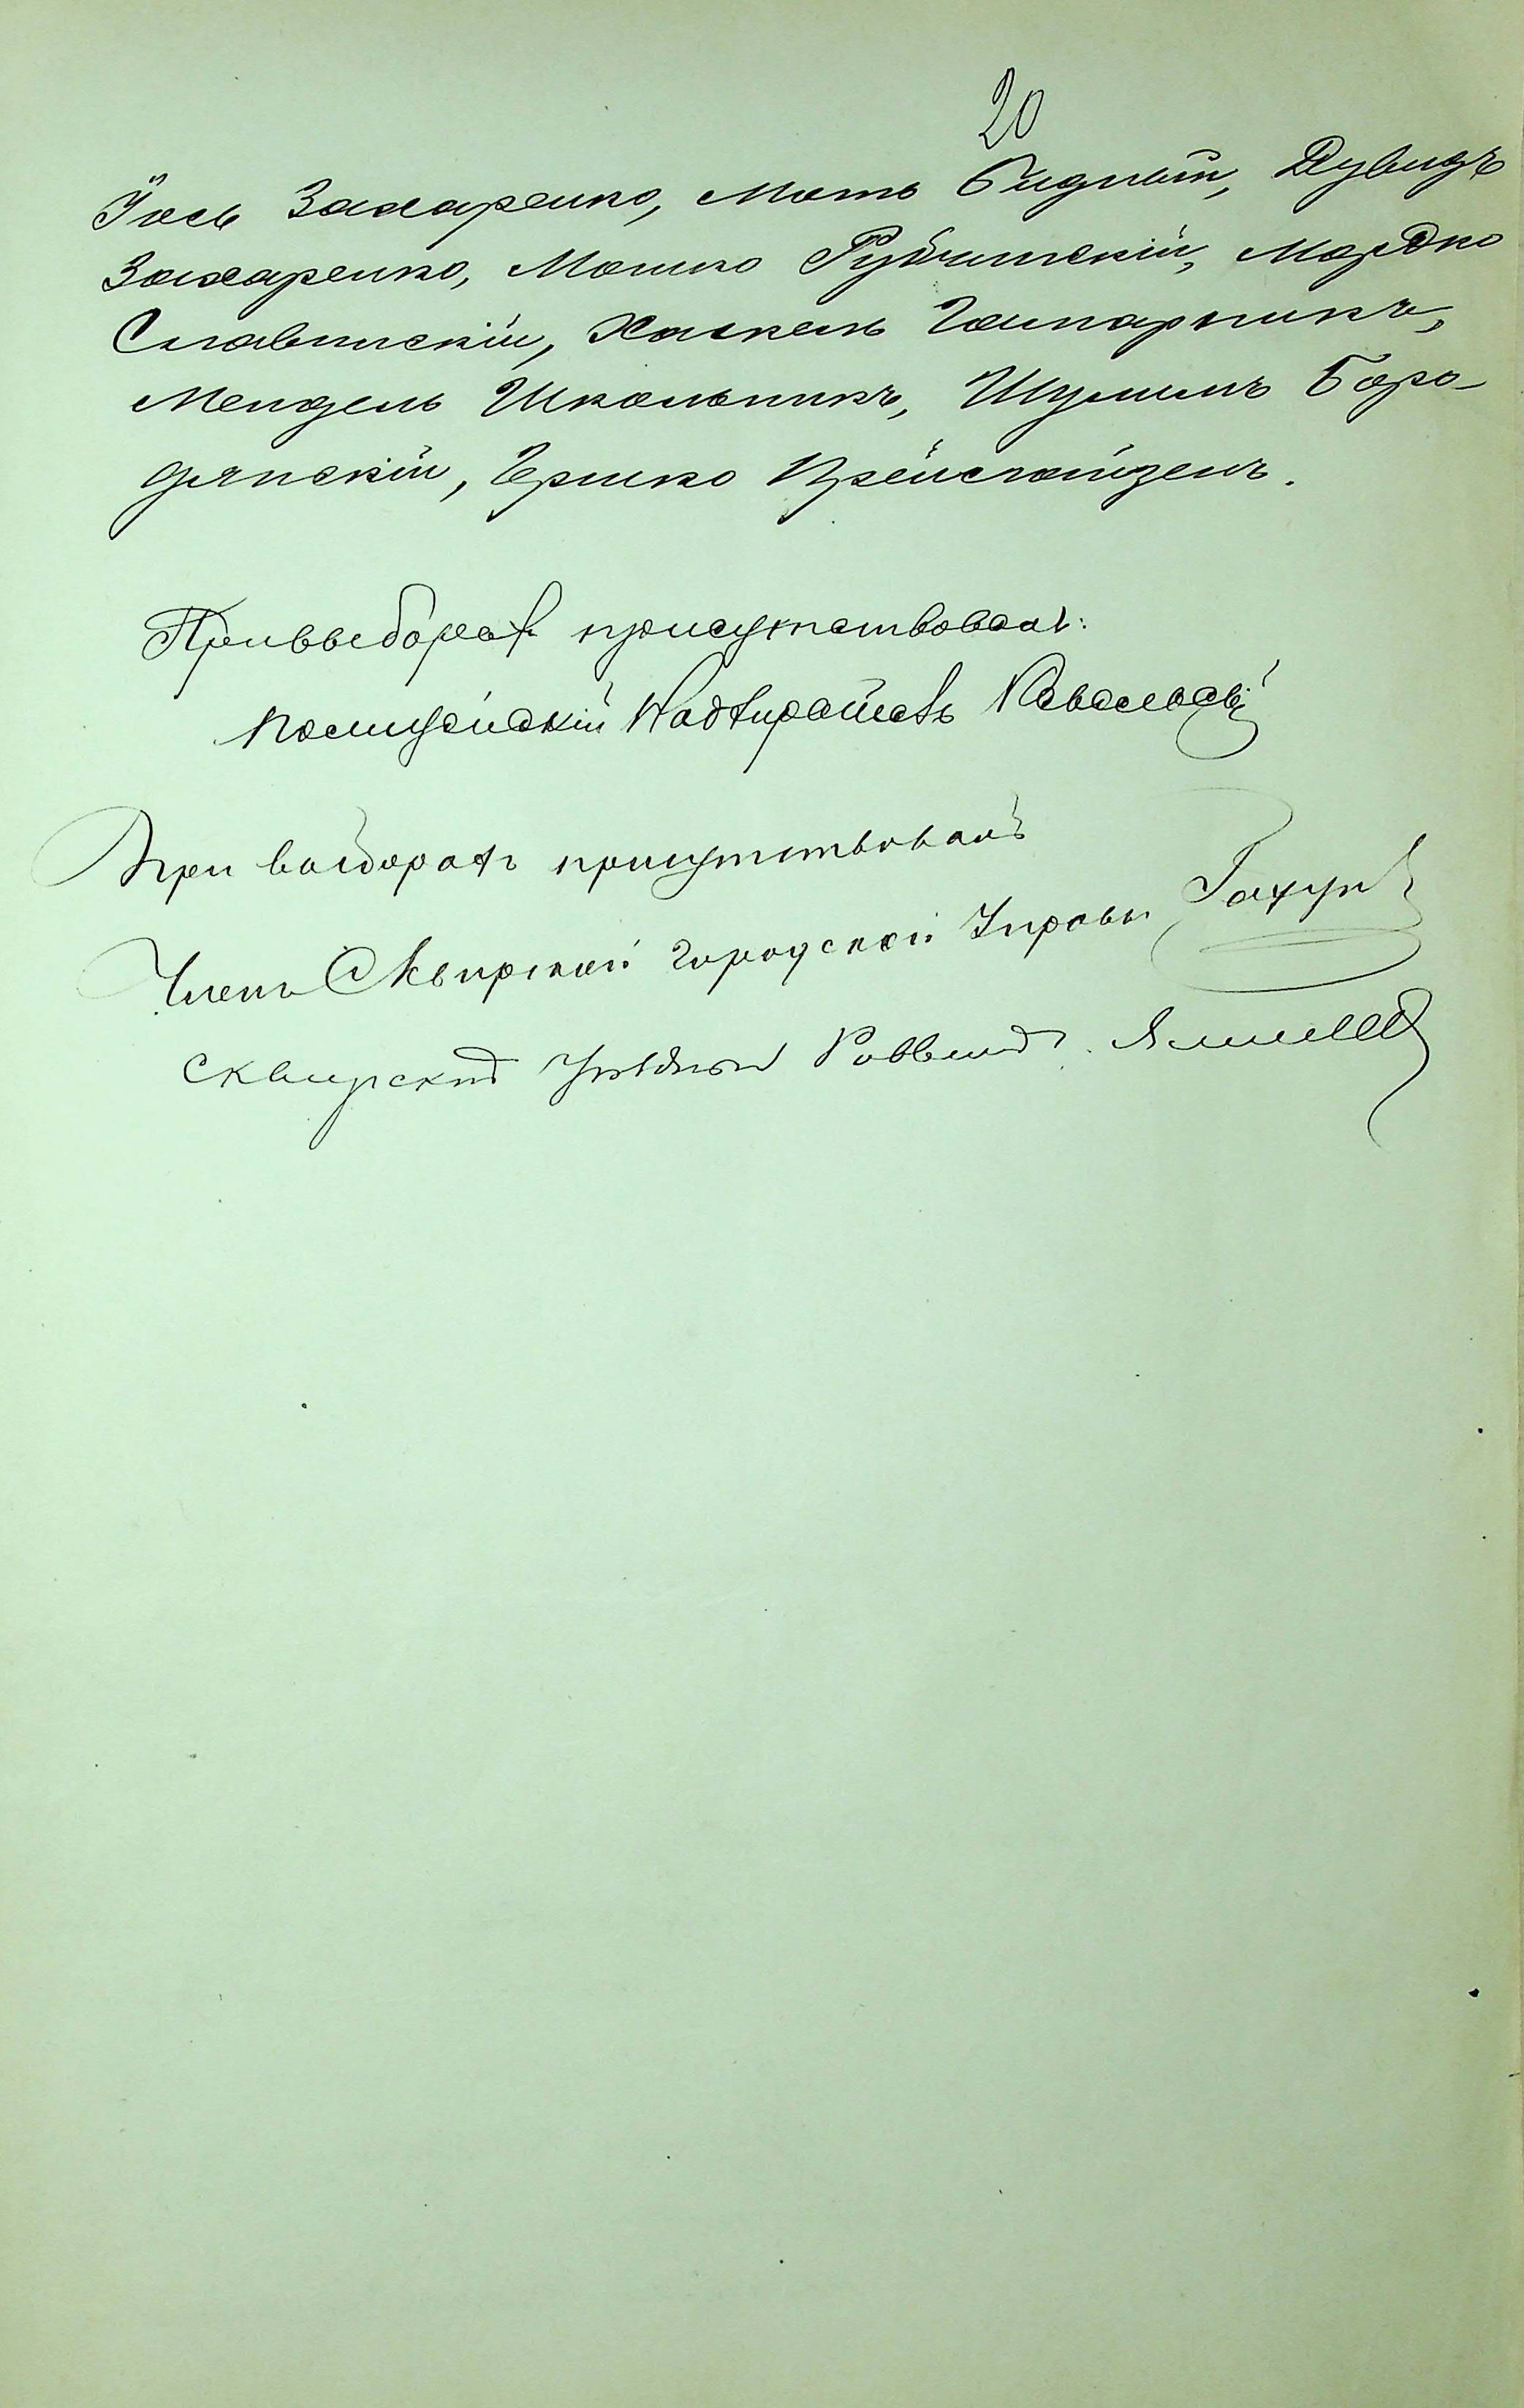 20
Іось Захаренко, Моть Бидный, Дувидъ
Захаренко, Мошко Рубинскій, Мордко
Славинскій, Хаскель Гонтарникъ,
Мендель Школьникъ, Шулимъ Боро-
дянскій, Гершко Крейслайзенъ.
При выборахъ присутствовалъ:
Полицейскій Надзиратель Ковальскій
При выборахъ присутствовалъ
Членъ Сквирской Городской Управы
Сквирскій Уѣздный Раввинъ